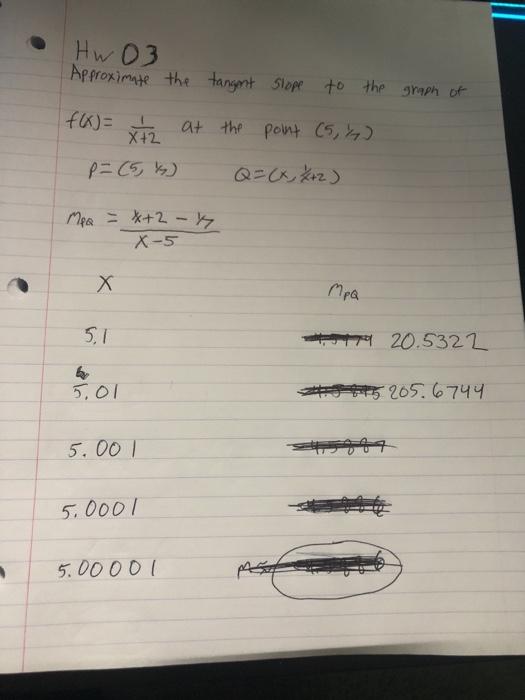 Hw 03
Approximate the tangent slope to the graph of
f(x)= 1/x+2 at the point (5, 1/7)
P=(5, 1/7) Q=(x, 1/x+2)
MPQ = 1/x+2 - 1/7
x-5
X MPQ
5.1 20.5322
5.01 205.6744
5.001
5.0001
5.00001